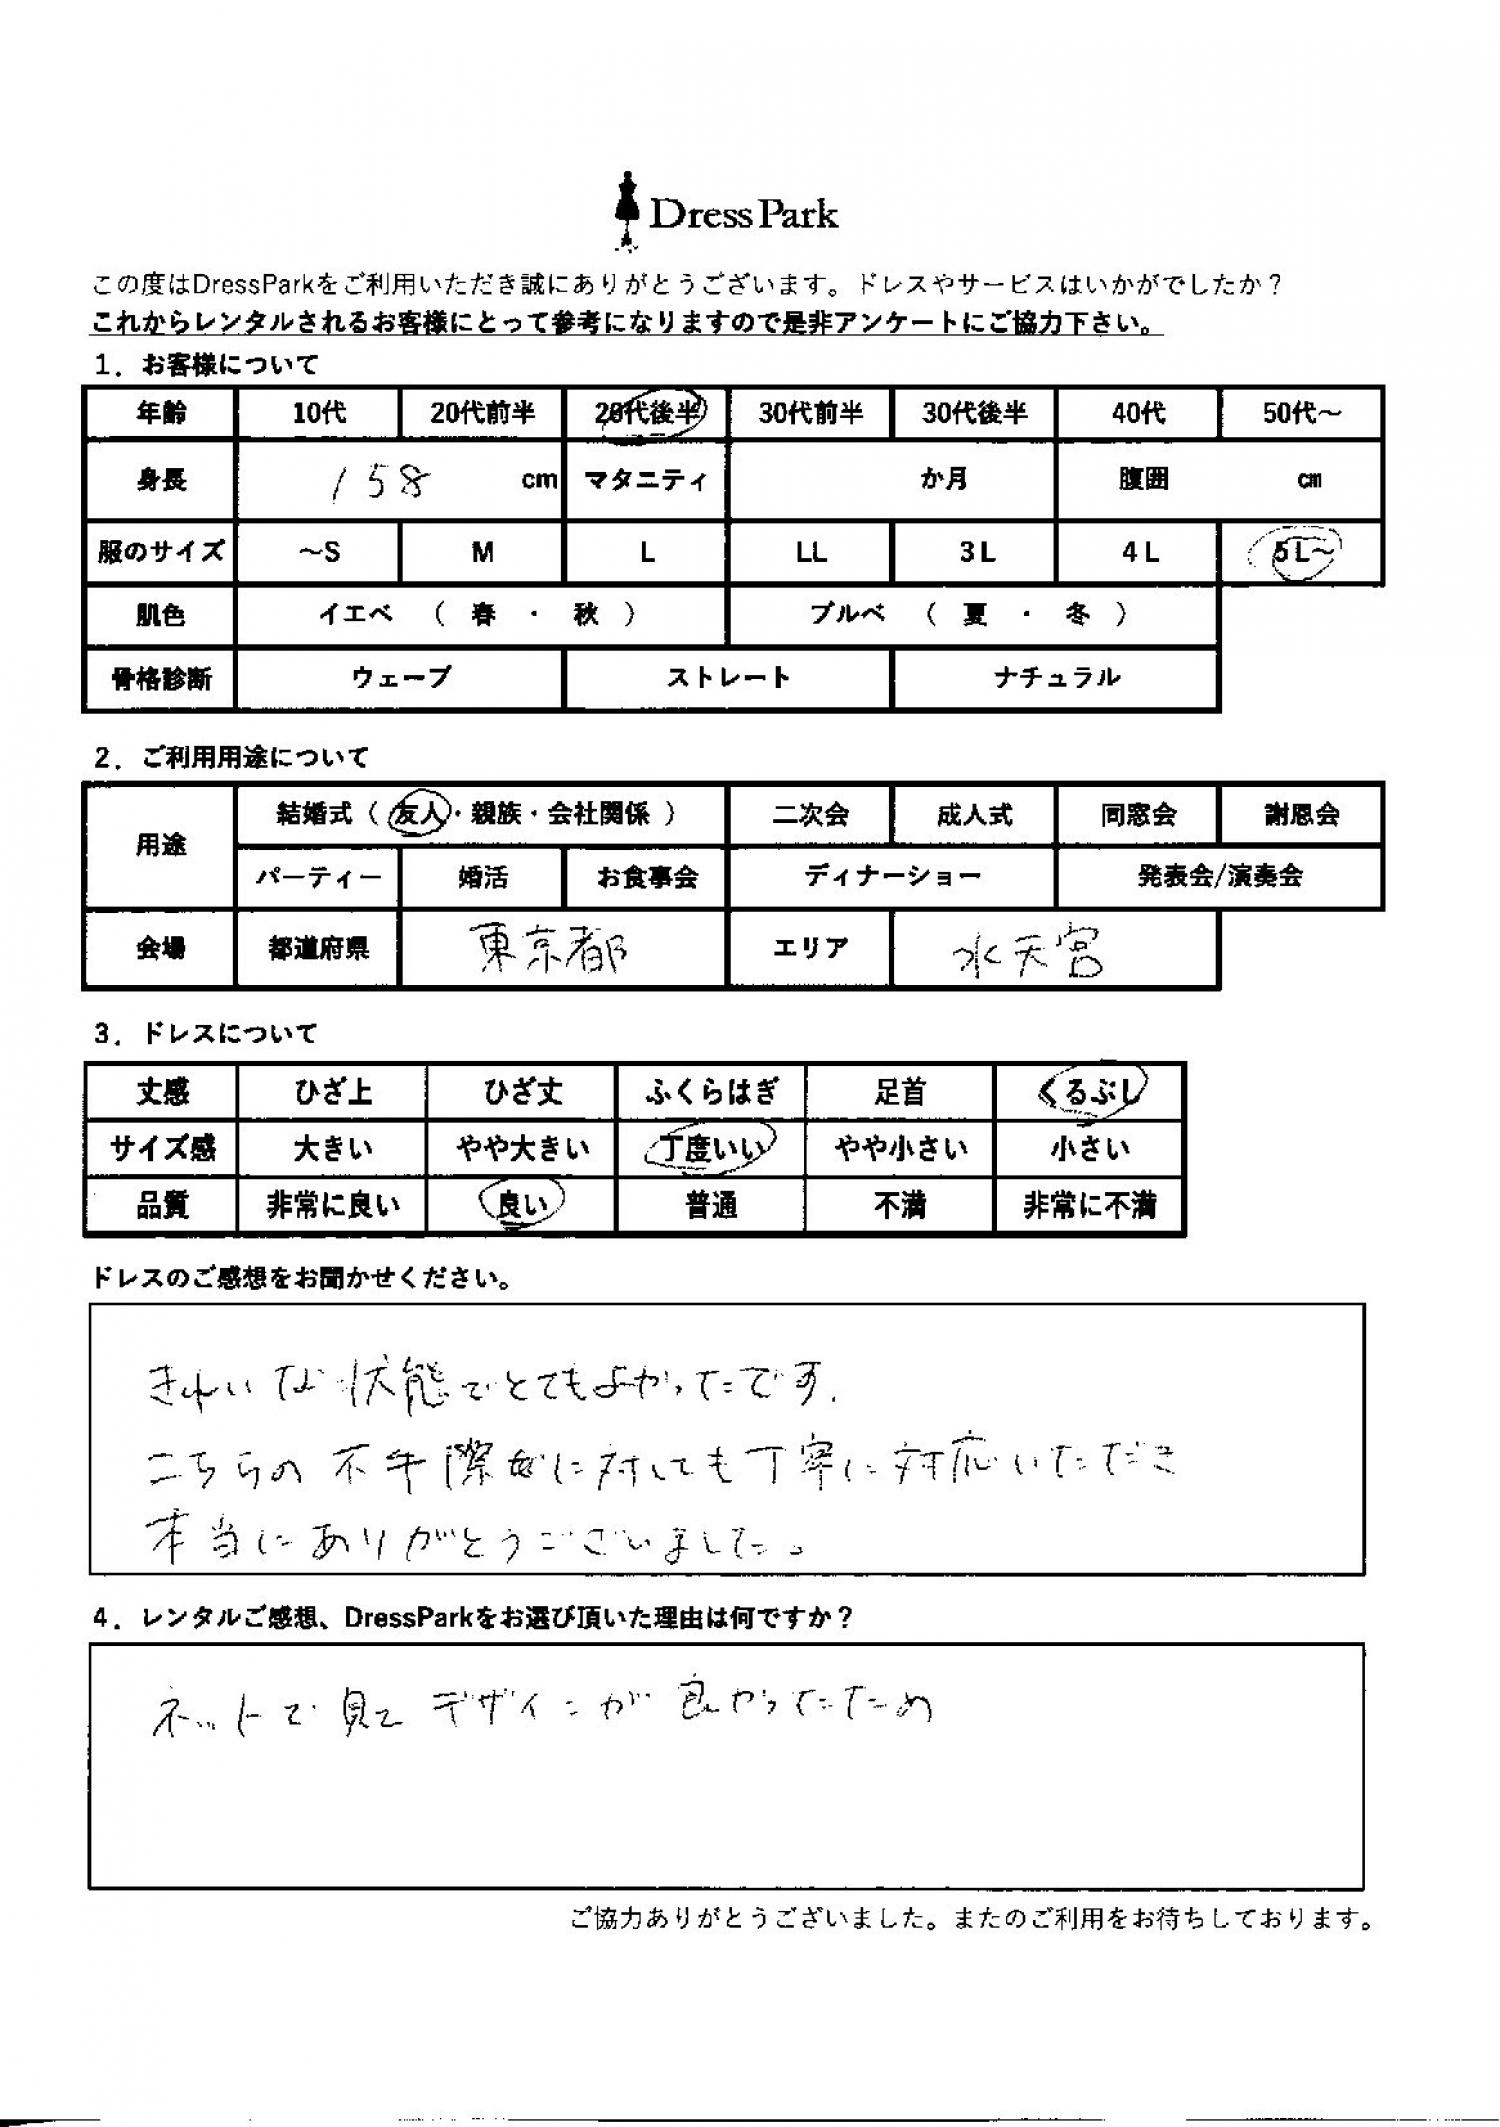 DressPark
この度はDressParkをご利用いただき誠にありがとうございます。ドレスやサービスはいかがでしたか？
これからレンタルされるお客様にとって参考になりますので是非アンケートにご協力下さい。
1．お客様について
年齢 10代 20代前半 20代後半 30代前半 30代後半 40代 50代～
身長 158 cm マタニティ か月 腹囲 cm
服のサイズ ～S M L LL 3L 4L 5L～
肌色 イエベ （ 春 ・ 秋 ） ブルベ （ 夏 ・ 冬 ）
骨格診断 ウェーブ ストレート ナチュラル
2．ご利用用途について
用途 結婚式（ 友人・親族・会社関係 ） 二次会 成人式 同窓会 謝恩会
パーティー 婚活 お食事会 ディナーショー 発表会/演奏会
会場 都道府県 東京都 エリア 水天宮
3．ドレスについて
丈感 ひざ上 ひざ丈 ふくらはぎ 足首 くるぶし
サイズ感 大きい やや大きい 丁度いい やや小さい 小さい
品質 非常に良い 良い 普通 不満 非常に不満
ドレスのご感想をお聞かせください。
きれいな状態でとてもよかったです.
こちらの不手際に対しても丁寧に対応いただき
本当にありがとうございました。
4．レンタルご感想、DressParkをお選び頂いた理由は何ですか？
ネットで見てデザインが良かったため
ご協力ありがとうございました。またのご利用をお待ちしております。